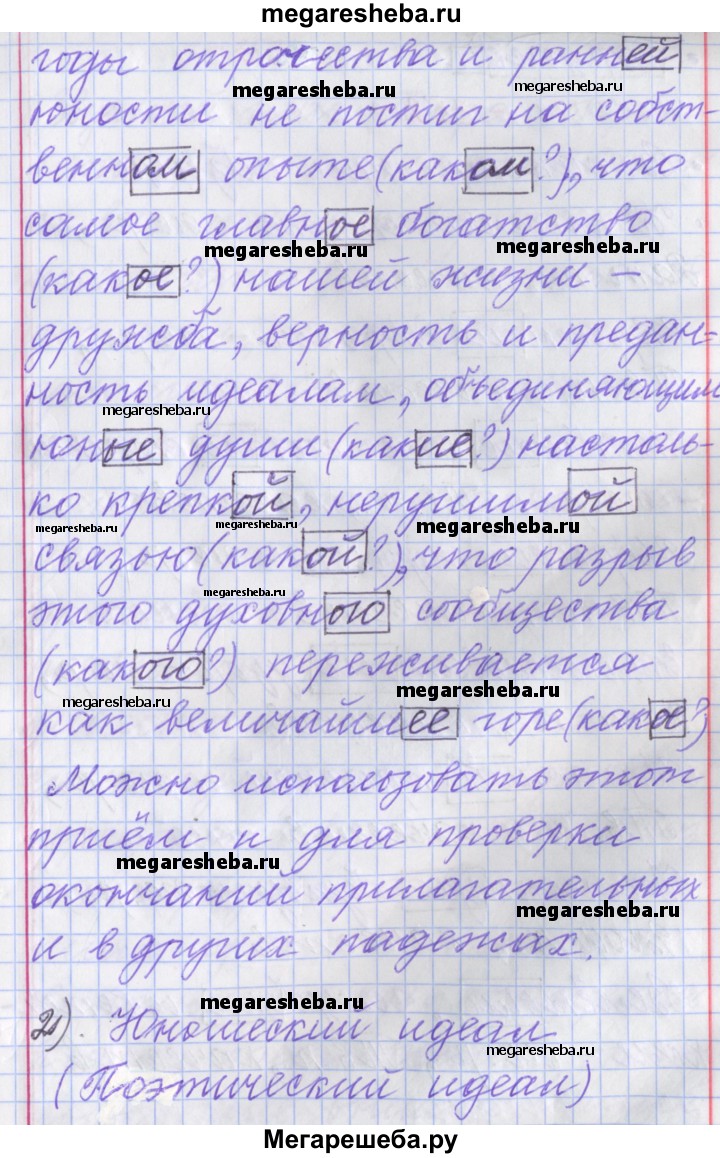 megaresheba.ru
годы отрочества и ранней
megaresheba.ru
megaresheba.ru
юности не постиг на собст-
венном опыте (каком?), что
самое главное богатство
megaresheba.ru
megaresheba.ru
(какое?) нашей жизни –
дружба, верность и предан-
ность идеалам, объединяющим
megaresheba.ru
юные души (какие?) настоль-
ко крепкой, нерушимой
megaresheba.ru
megaresheba.ru
megaresheba.ru
связью (какой?), что разрыв
megaresheba.ru
этого духовного сообщества
(какого?) переживается
megaresheba.ru
megaresheba.ru
как величайшее горе (какое?)
Можно использовать этот
приём и для проверки
megaresheba.ru
окончаний прилагательных
megaresheba.ru
и в других падежах.
megaresheba.ru
2). Юношеский идеал
megaresheba.ru
(Поэтический идеал)
Мегарешеба.ру